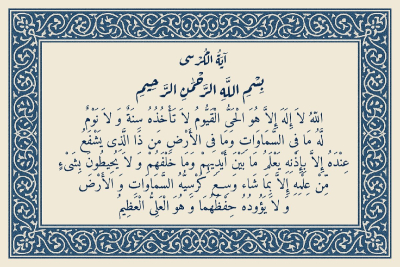 آيَةُ الْكُرْسِى
بِسْمِ اللَّهِ الرَّحْمَٰنِ الرَّحِيمِ
اللَّهُ لَا إِلَهَ إِلَّا هُوَ الْحَيُّ الْقَيُّومُ لَا تَأْخُذُهُ سِنَةٌ وَ لَا نَوْمٌ
لَّهُ مَا فِى السَّمَاوَاتِ وَمَا فِى الْأَرْضِ مَنْ ذَا الَّذِى يَشْفَعُ
عِنْدَهُ إِلَّا بِإِذْنِهِ يَعْلَمُ مَا بَيْنَ أَيْدِيهِمْ وَمَا خَلْفَهُمْ وَ لَا يُحِيطُونَ بِشَىْءٍ
مِّنْ عِلْمِهِ إِلَّا بِمَا شَاءَ وَسِعَ كُرْسِيُّهُ السَّمَاوَاتِ وَ الْأَرْضَ
وَ لَا يَؤُودُهُ حِفْظُهُمَا وَ هُوَ الْعَلِىُّ الْعَظِيمُ